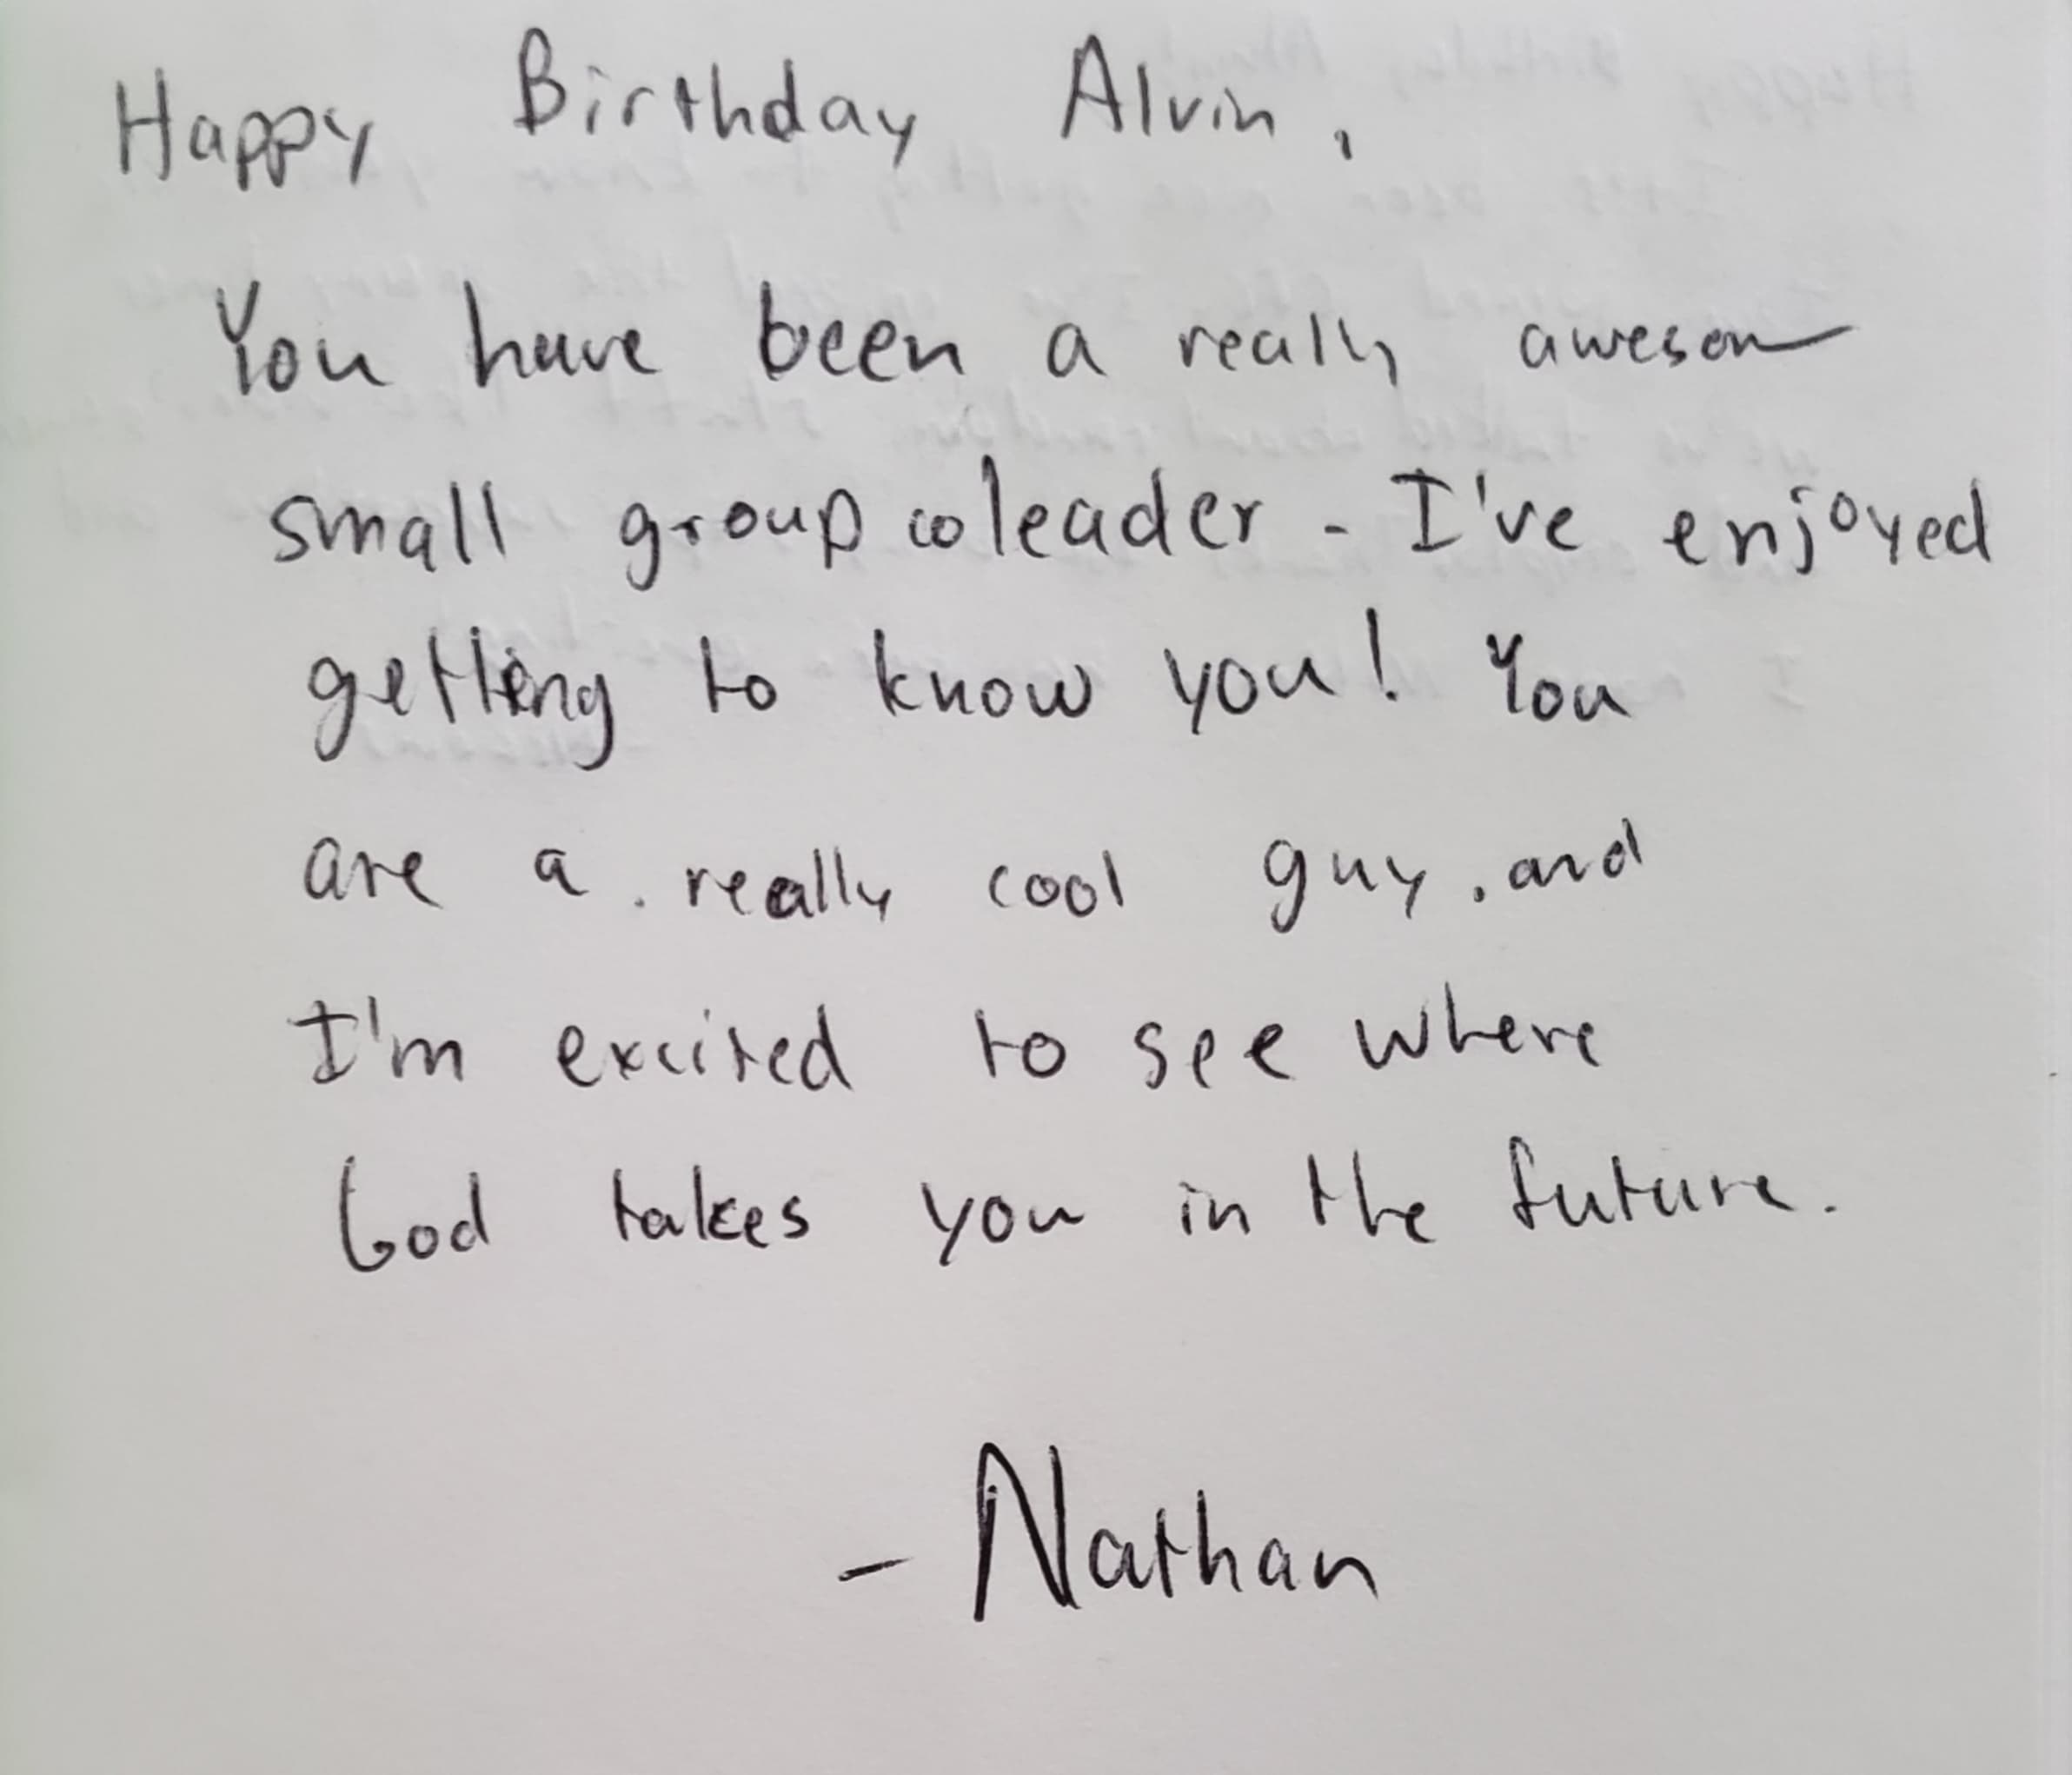 Happy Birthday Alvin,
You have been a really awesom
small group coleader - I've enjoyed
getting to know you! You
are a really cool guy, and
I'm excited to see where
God takes you in the future.
- Nathan